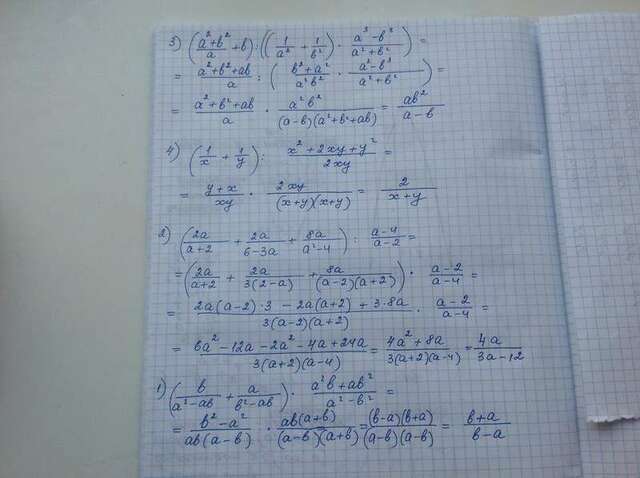 3) ((a²+b²)/a + b) : ((1/a² + 1/b²) · (a³-b³)/(a²+b²)) =
= (a²+b²+ab)/a : ((b²+a²)/(a²b²) · (a³-b³)/(a²+b²)) =
= (a²+b²+ab)/a · (a²b²)/((a-b)(a²+b²+ab)) = ab²/(a-b)
4) (1/x + 1/y) : (x²+2xy+y²)/(2xy) =
= (y+x)/(xy) · (2xy)/((x+y)(x+y)) = 2/(x+y)
2) (2a/(a+2) + 2a/(6-3a) + 8a/(a²-4)) : (a-4)/(a-2) =
= (2a/(a+2) + 2a/(3(2-a)) + 8a/((a-2)(a+2))) · (a-2)/(a-4) =
= (2a(a-2)·3 - 2a(a+2) + 3·8a)/(3(a-2)(a+2)) · (a-2)/(a-4) =
= (6a²-12a-2a²-4a+24a)/(3(a+2)(a-4)) = (4a²+8a)/(3(a+2)(a-4)) = 4a/(3a-12)
1) (b/(a²-ab) + a/(b²-ab)) · (a²b+ab²)/(a²-b²) =
= (b²-a²)/(ab(a-b)) · (ab(a+b))/((a-b)(a+b)) = ((b-a)(b+a))/((a-b)(a-b)) = (b+a)/(b-a)